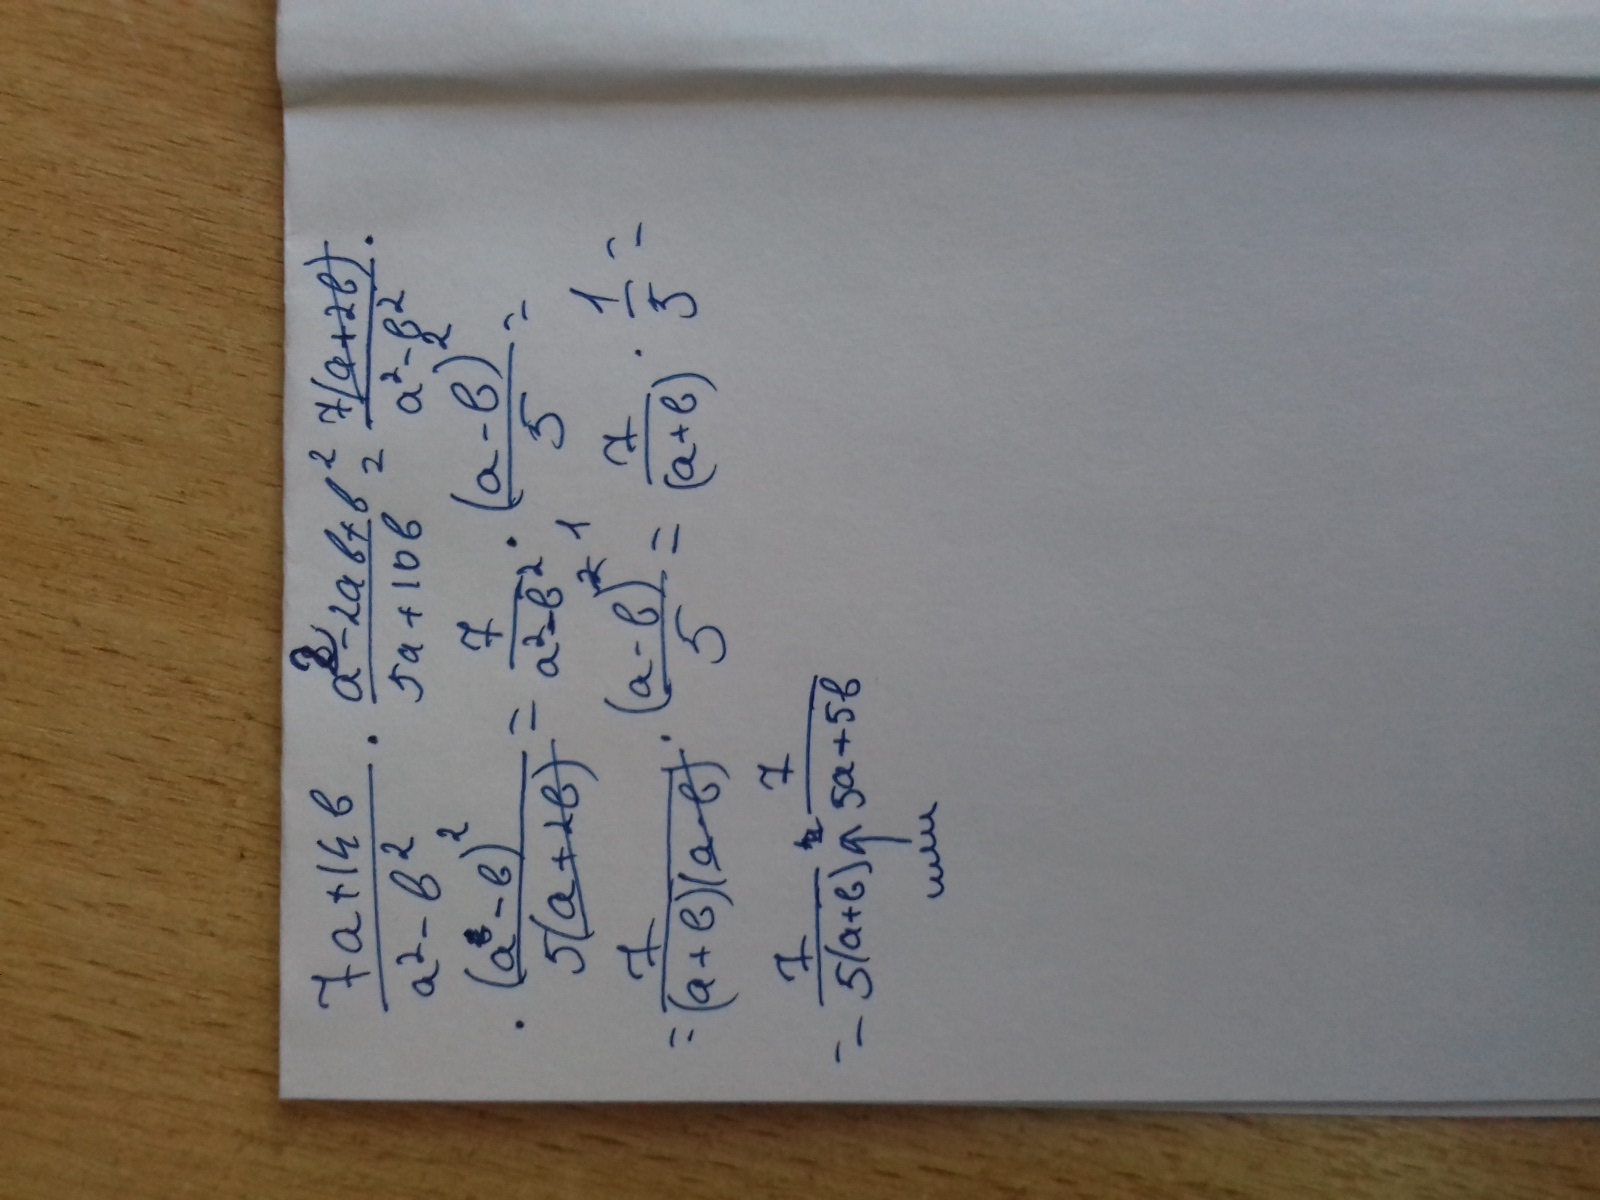 (7a+14в)/(a²-в²) · (a²-2ав+в²)/(5a+10в) = 7(a+2в)/(a²-в²) ·
· (a-в)²/5(a+2в) = 7/(a²-в²) · (a-в)²/5 =
= 7/(a+в)(a-в) · (a-в)²¹/5 = 7/(a+в) · 1/5 =
= 7/5(a+в) 7/(5a+5в)
или